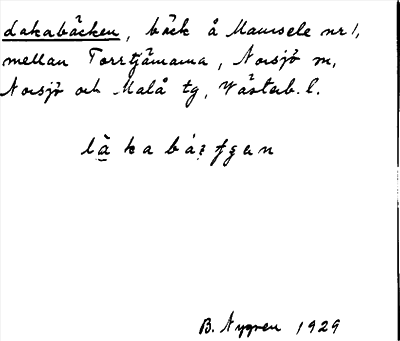 Lakabäcken, bäck å Maursele nr 1,
mellan Torrtjärnarna, Norsjö sn,
Norsjö och Malå tg, Västerb. l.
B. Nygren 1929